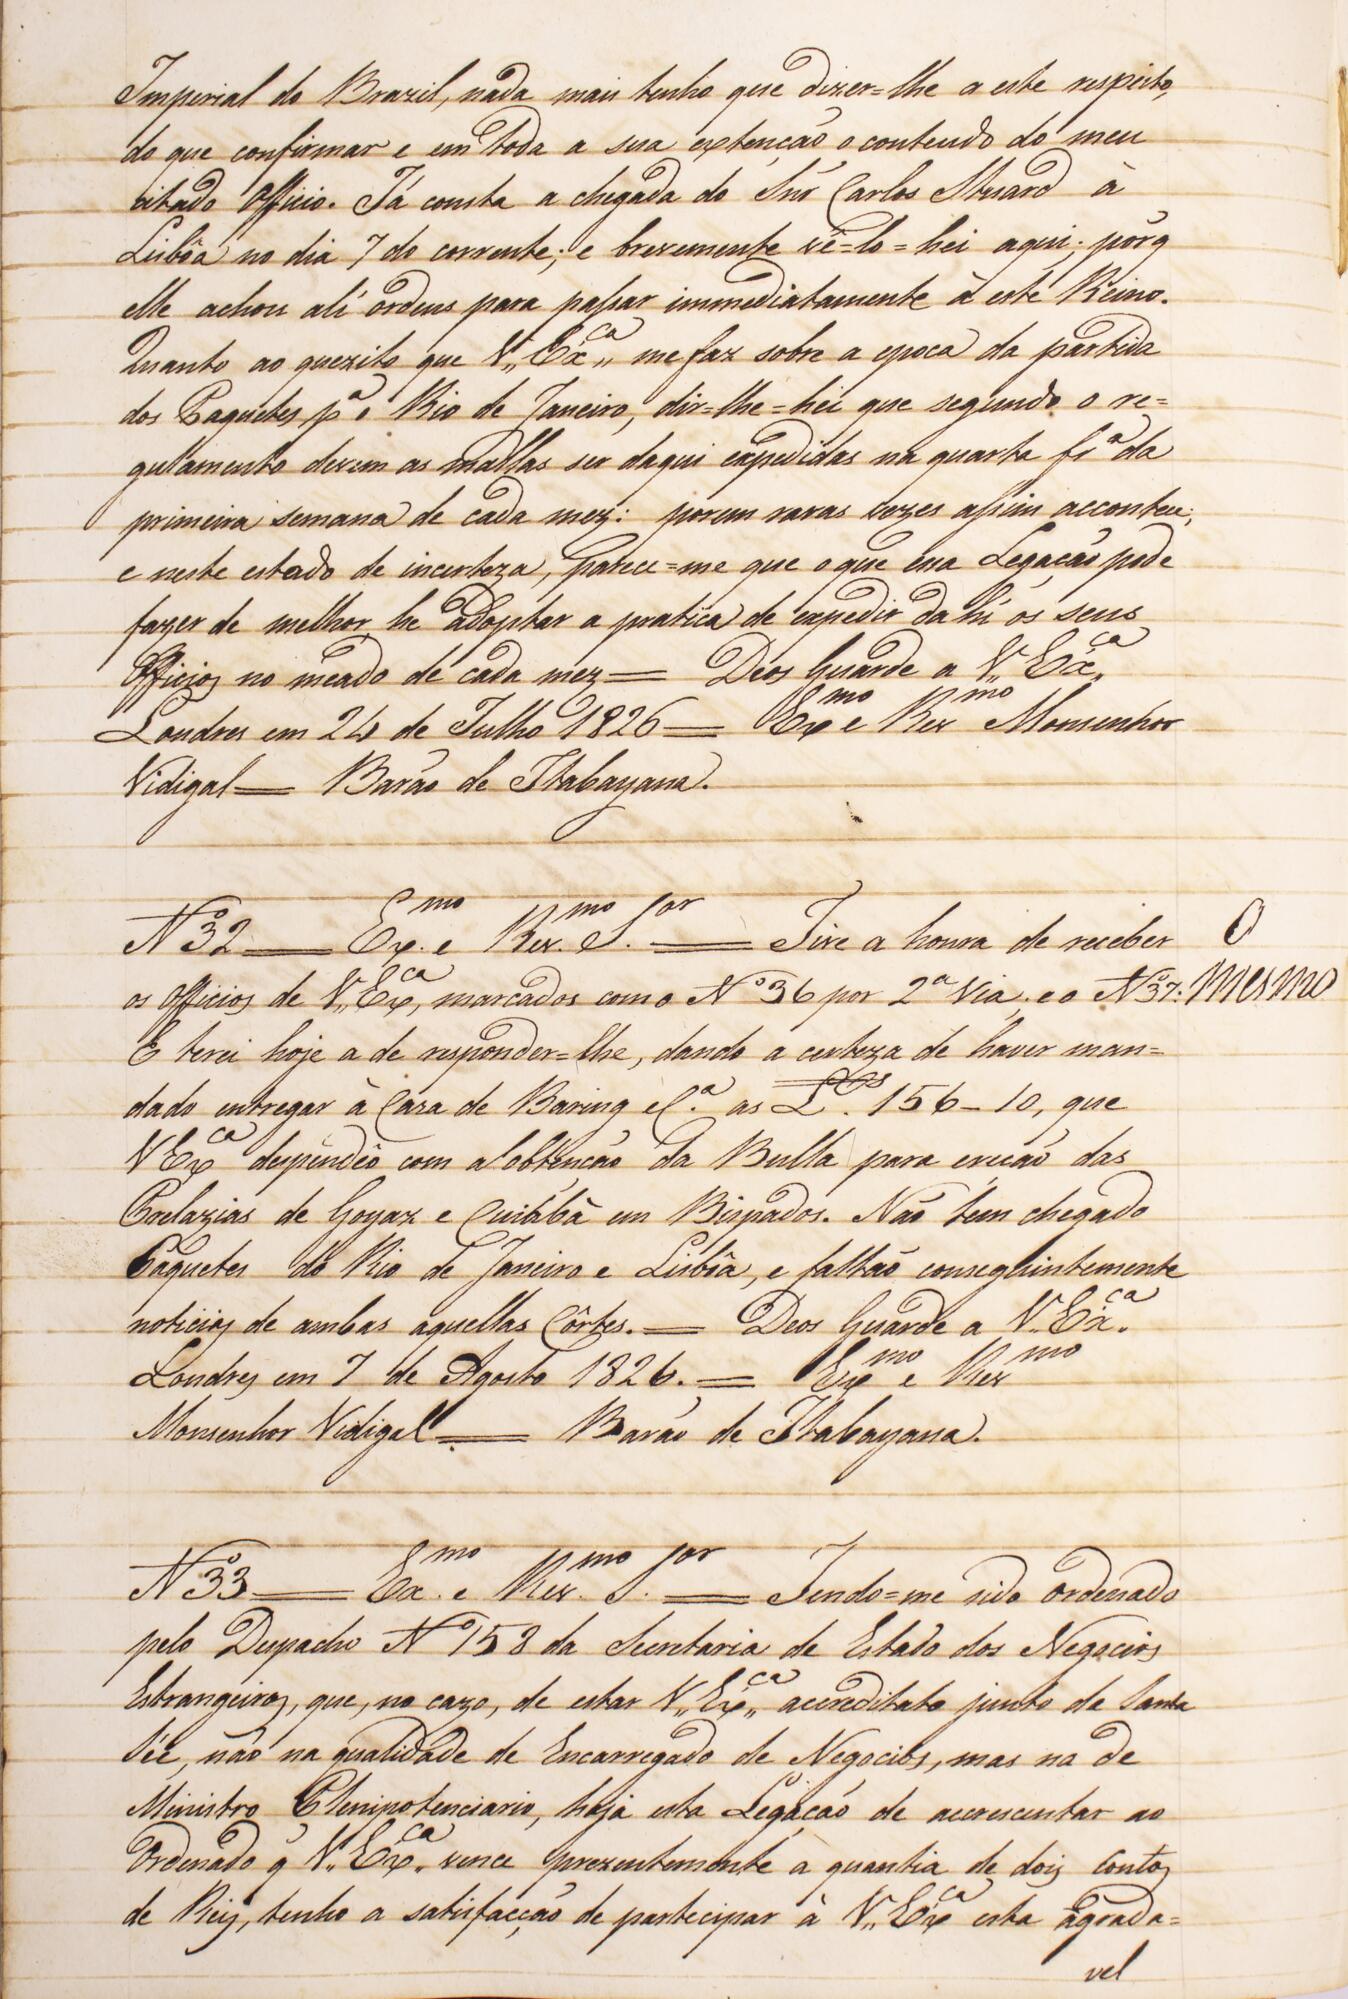 Imperial do Brazil, nada mais tenho que dizer=lhe a este respeito,
do que confirmar e em toda a sua extenção o contendo do meu
citado Officio. Já consta a chegada do Snr̃ Carlos Stuard à
Lisbôa no dia 7 do corrente; e brevemente vê=lo=hei aqui; pórq
elle achou alí ordens para passar immediatamente à este Reino.
Quanto ao quezito que V,, Exᶜᵃ,, me faz sobre a epoca da partida
dos Paquetes pᵃ o Rio de Janeiro, dir=lhe=hei que segundo o re=
gulamento devem as mallas ser daqui expedidas na quarta frᵃ da
primeira semana de cada mez: porem raras vezes assim accontece;
e neste estado de incerteza, parece=me que o que essa Legação póde
fazer de melhor, he adoptar a pratica de expedir dahi os seus
Officios no meado de cada mez = Deos Guarde a V,, Exᶜᵃ,,
Londres em 24 de Julho 1826 = Exᵐᵒ e Revᵐᵒ Monsenhor
Vidigal = Barão de Itabayana.
Nº 32 = Exᵐᵒ. e Revᵐᵒ. Sᵒʳ. = Tive a honra de receber
os Officios de V,, Exᶜᵃ, marcados com o Nº 36 por 2ᵃ Via, e o Nº 37.
O
mesmo
E terei hoje a de responder=lhe, dando a certeza de haver man=
dado entregar à Caza de Baring e Cᵃ. as Lᵉˢ. 156-10, que
V Exᶜᵃ despendêo com a obtencão da Bulla para ereção das
Prelazias de Goyaz e Cuiábâ em Bispados. Não tem chegado
Paquetes do Rio de Janeiro e Lisbôa, e faltão conseqüintemente
noticias de ambas aquellas Côrtes. = Deos Guarde a V. Exᶜᵃ.
Londres em 7 de Agosto 1826. = Exᵐᵒ e Revᵐᵒ
Monsenhor Vidigal = Barão de Itabayana.
Nº 33 = Exᵐᵒ. e Revᵐᵒ. Sᵒʳ. = Tendo=me sido ordenado
pelo Despacho Nº 158 da Secretaria de Estado dos Negocios
Estrangeiros, que, no cazo, de estar V,, Exᶜᵃ,, accreditato junto da Santa
Séé, não na qualidade de Encarregado de Negocios, mas na de
Ministro Plenipotenciario, haja esta Legação de accrescentar ao
Ordenado q̃ V,, Exᶜᵃ,, vence prezentemente a quantia de dois Contos
de Reis, tenho a satisfacção de partecipar à V,, Exᶜᵃ esta agrada=
vel